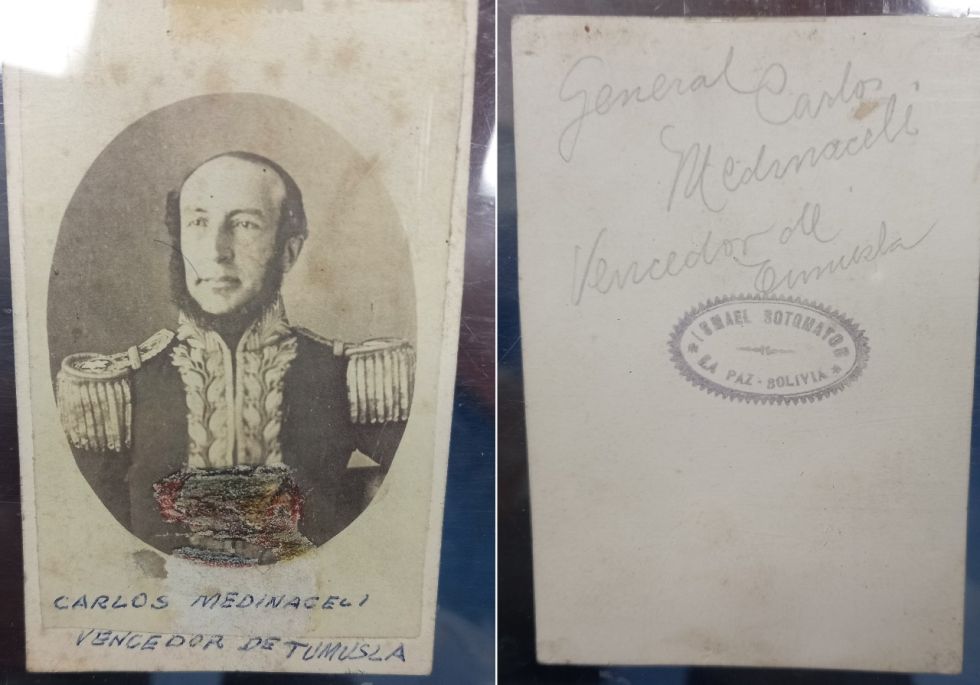 CARLOS MEDINACELI
VENCEDOR DE TUMUSLA
General Carlos
Medinaceli
Vencedor de
Tumusla
ISMAEL SOTOMAYOR
LA PAZ - BOLIVIA